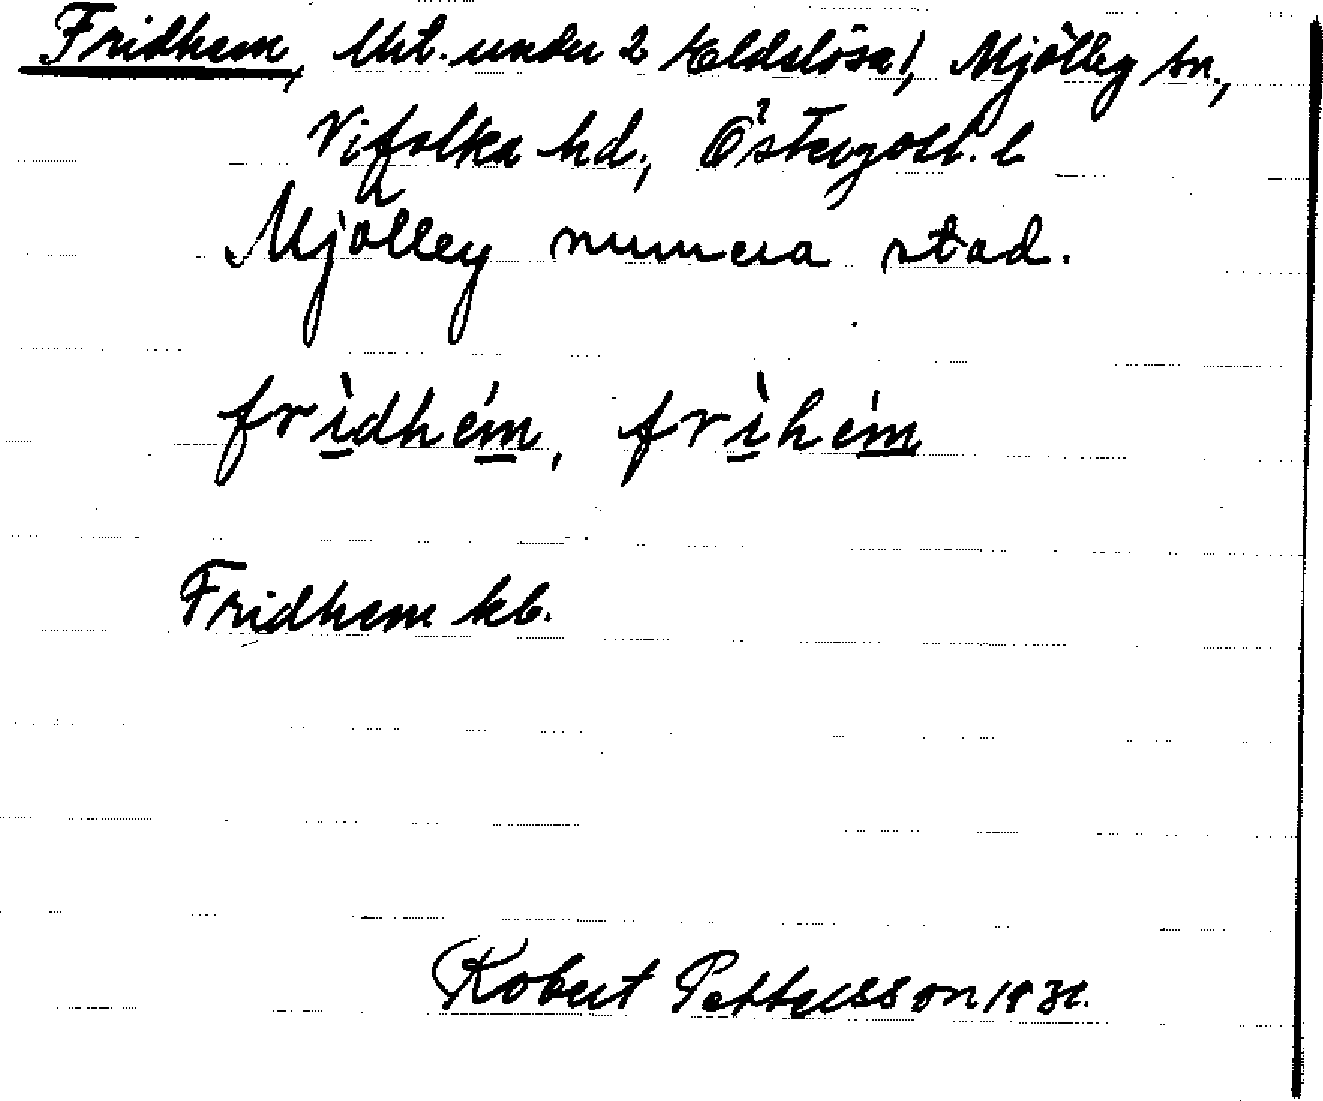 Fridhem, lht. under 2 Eldslösa!, Mjölby sn.,
Vifolka hd., Östergötl. l
Mjölby numera stad.
frìdhém, frìhém
Fridhem kb.
Robert Pettersson